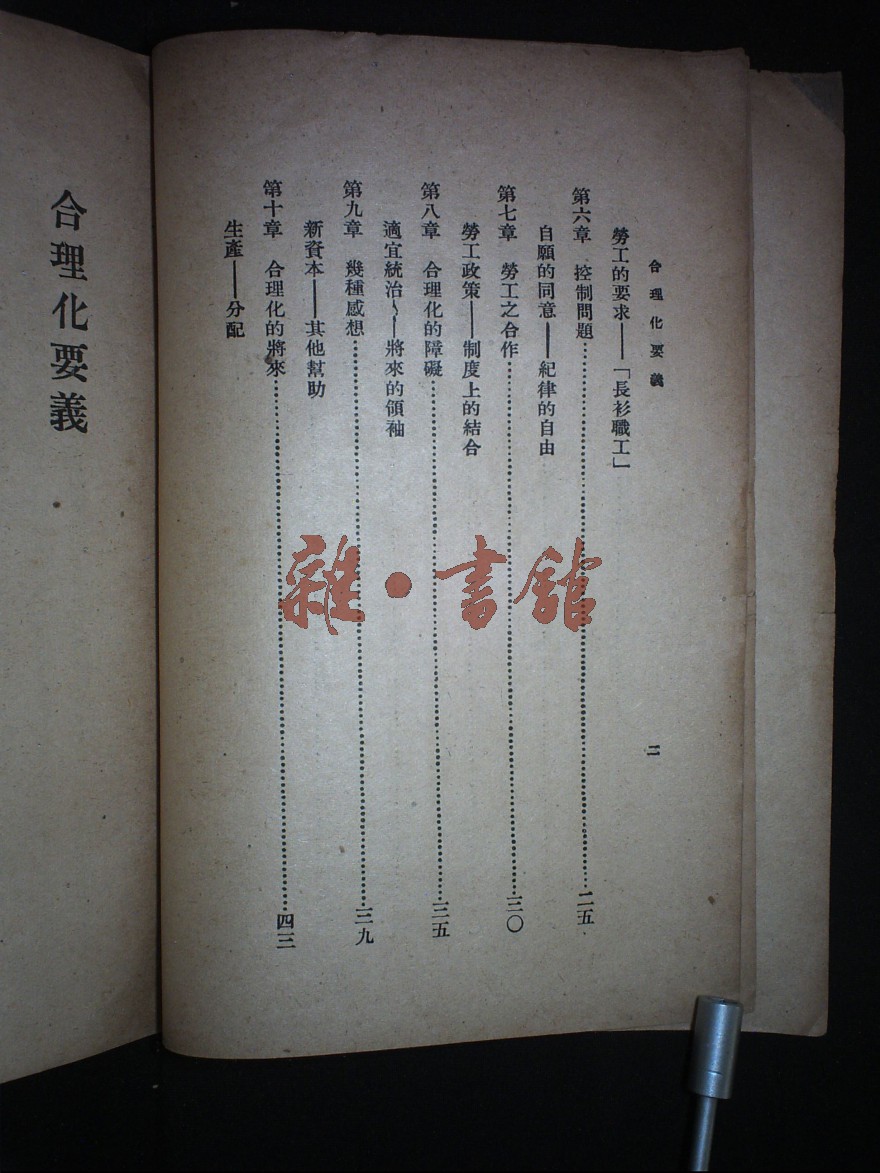 合理化要義
二
勞工的要求——「長衫職工」
第六章　控制問題……二五
自願的同意——紀律的自由
第七章　勞工之合作……三〇
勞工政策——制度上的結合
第八章　合理化的障礙……三五
適宜統治——將來的領袖
第九章　幾種感想……三九
新資本——其他幫助
第十章　合理化的將來……四三
生產——分配
合理化要義
雜·書館